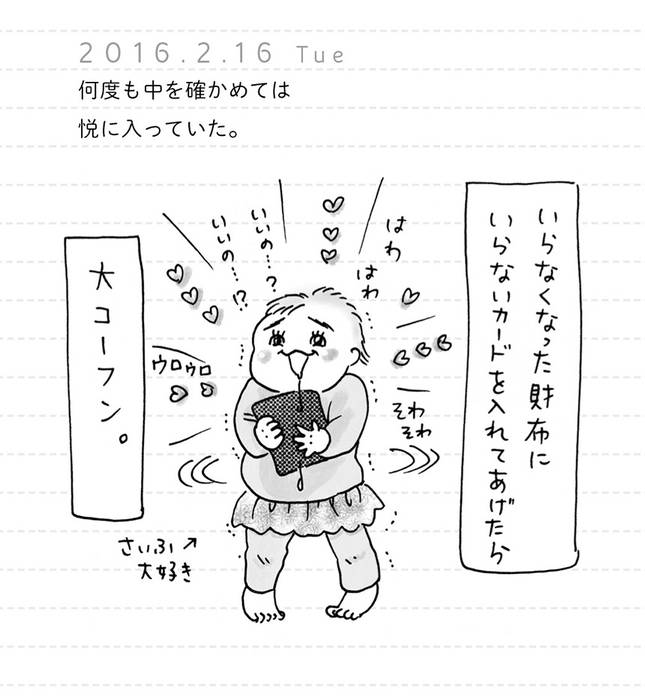 2016.2.16 Tue
何度も中を確かめては
悦に入っていた。
いらなくなった財布に
いらないカードを入れてあげたら
はわ
はわ
いいの…?
いいの…!?
そわ
そわ
ウロウロ
さいふ↗
大好き
大コーフン。